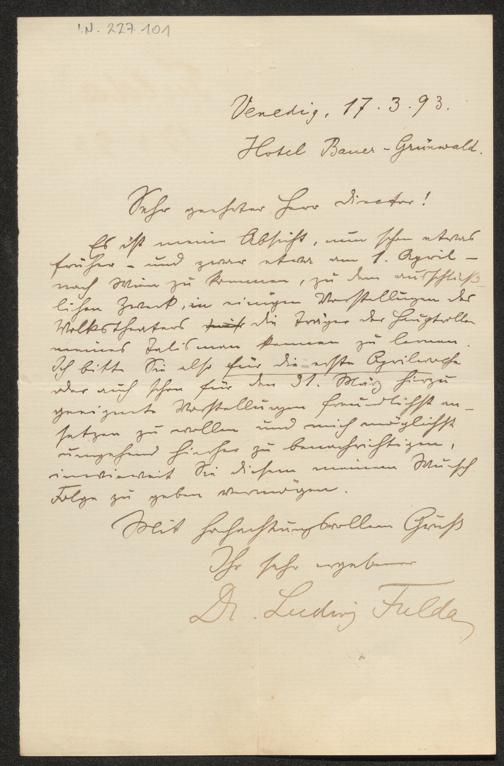 I.N. 227.101
Venedig, 17.3.93.
Hotel Bauer-Grünwald.
Sehr geehrter Herr Director!
Es ist meine Absicht, nun schon etwas
früher – und zwar etwa am 1. April –
nach Wien zu kommen, zu dem ausschließ-
lichen Zweck, in einigen Vorstellungen des
Volkstheaters die Träger der Hauptrollen
meines Talisman kennen zu lernen.
Ich bitte Sie also für die erste Aprilwoche
oder auch schon für den 31. März hierzu
geeignete Vorstellungen freundlichst an-
setzen zu wollen und mich möglichst
umgehend hierher zu benachrichtigen,
inwieweit Sie diesem meinem Wunsch
Folge zu geben vermögen.
Mit hochachtungsvollem Gruß
Ihr sehr ergebener
Dr. Ludwig Fulda